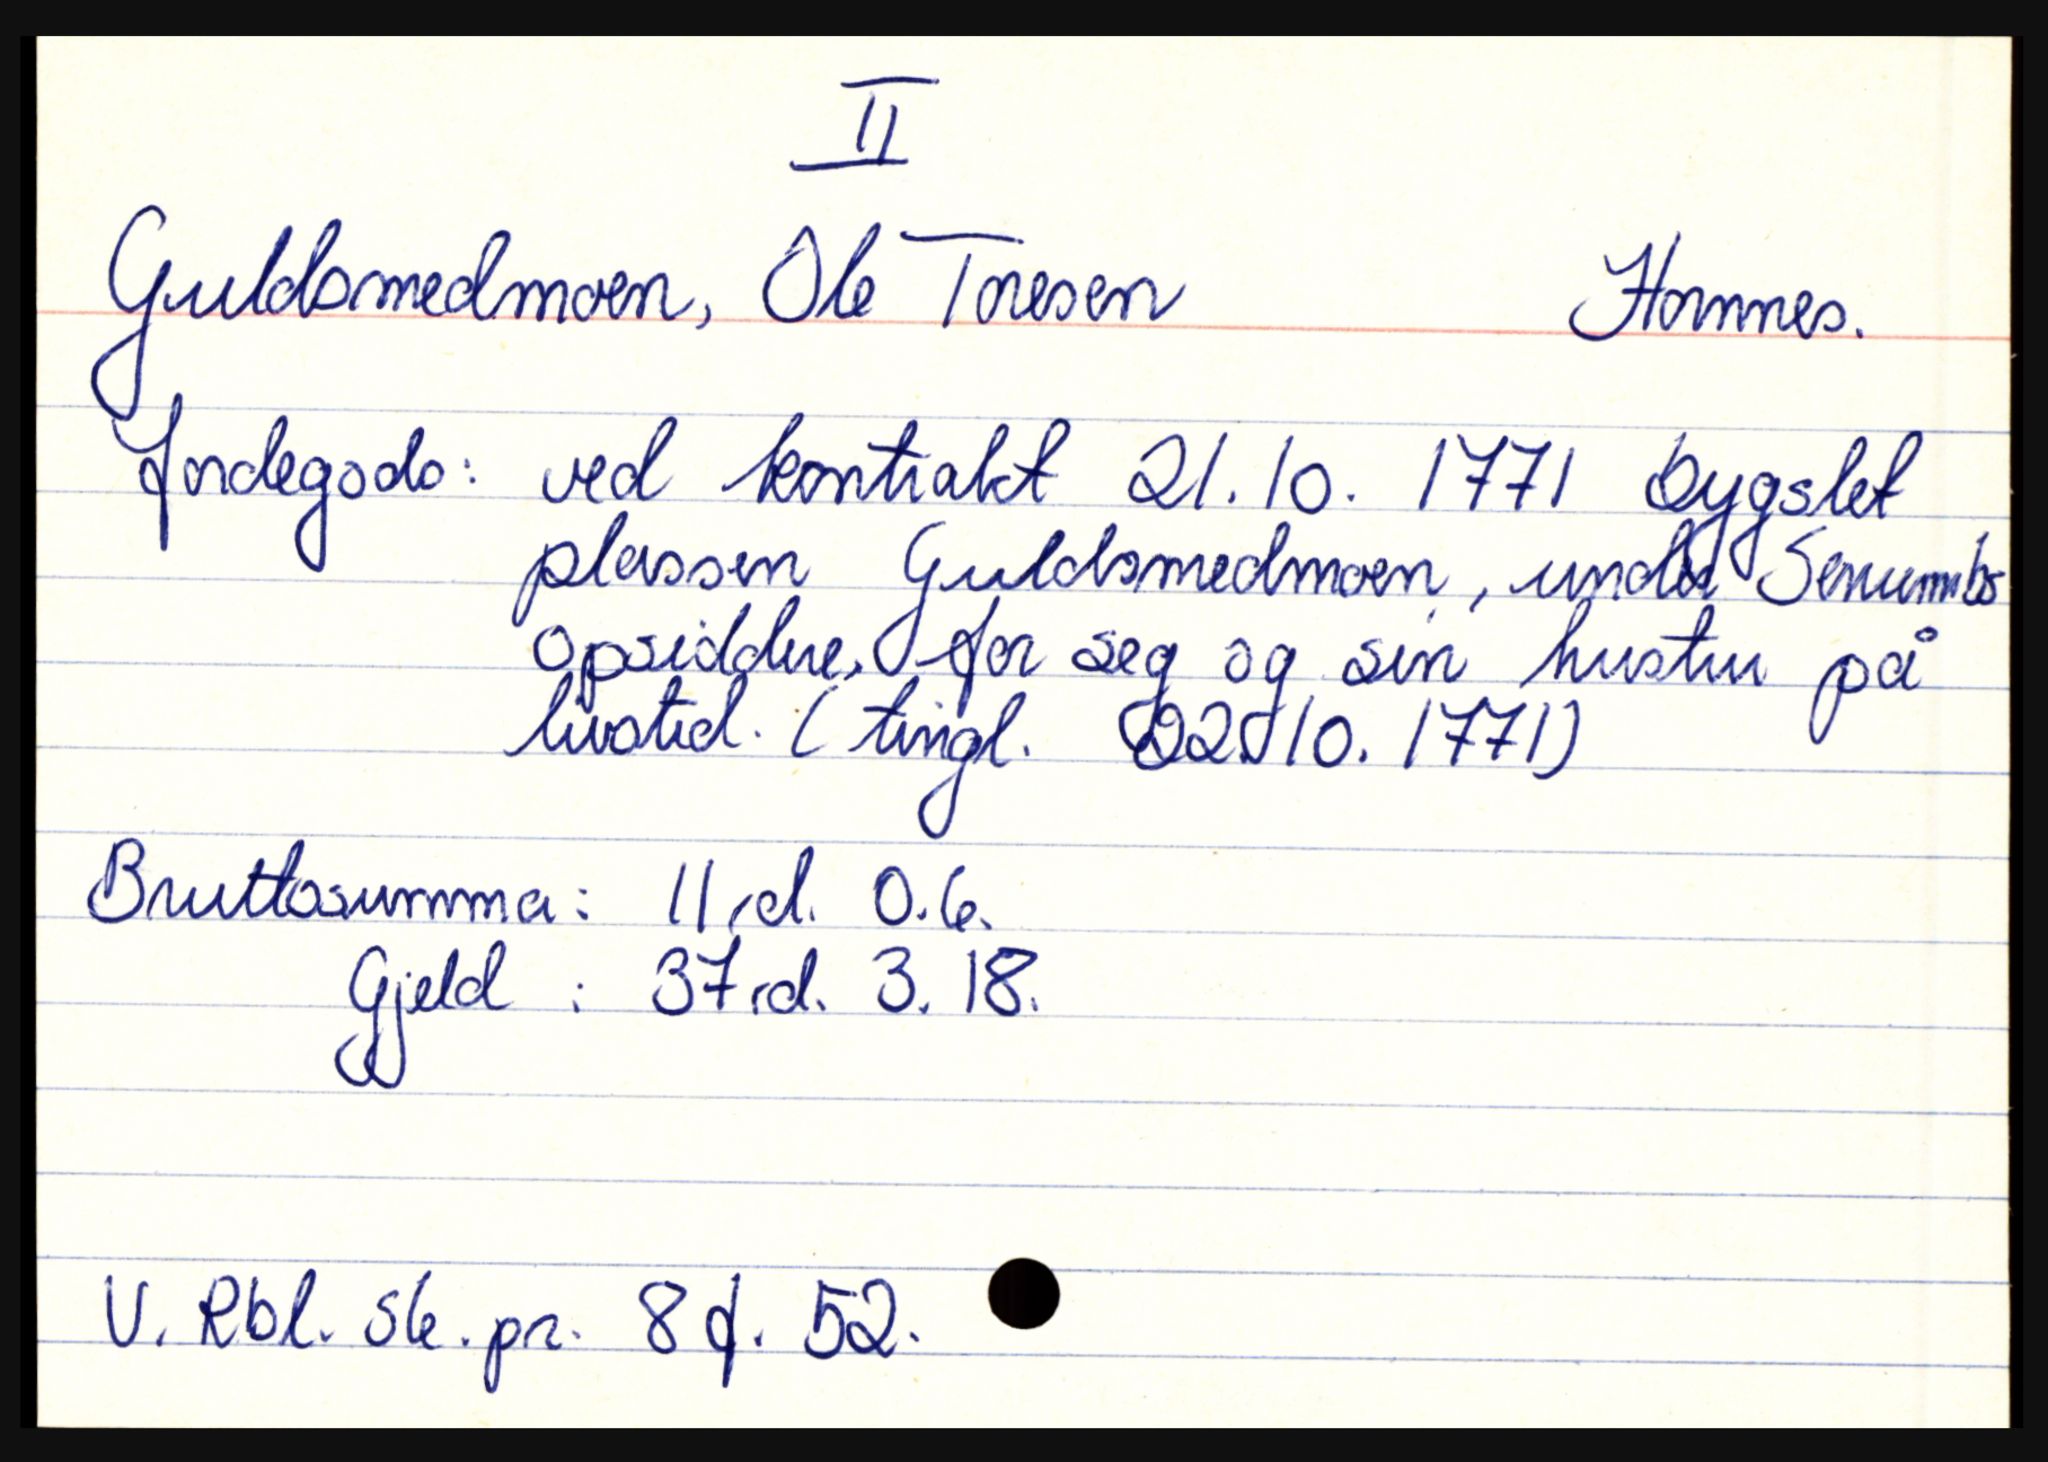 II
Guldsmedmoen, Ole Toresen Hornnes.
Jordegods: ved kontrakt 21.10. 1771 bygslet
plassen Guldsmedmoen, under Senumbs
opsiddere, for seg og sin hustru på
livstid. (tingl. 22.10. 1771)
Bruttosumma: 11 rd. 0.6.
Gjeld : 37 rd. 3. 18.
V. Rbl. sk. pr. 8 f. 52.